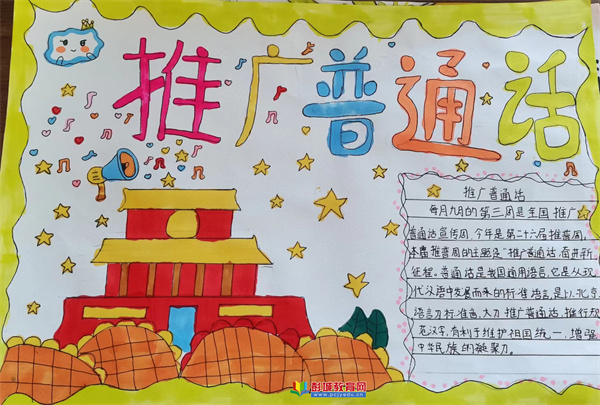 推广普通话
推广普通话
每月九月的第三周是全国推广
普通话宣传周,今年是第二十六届推普周,
本届推普周的主题是"推广普通话,奋进新
征程。普通话是我国通用语言,它是从现
代汉语中发展而来的标准语言,是以北京
语言为标准音,大力推广普通话,推行规
范汉字,有利于维护祖国统一,增强
中华民族的凝聚力。
彭城教育网
www.pcjyedu.cn